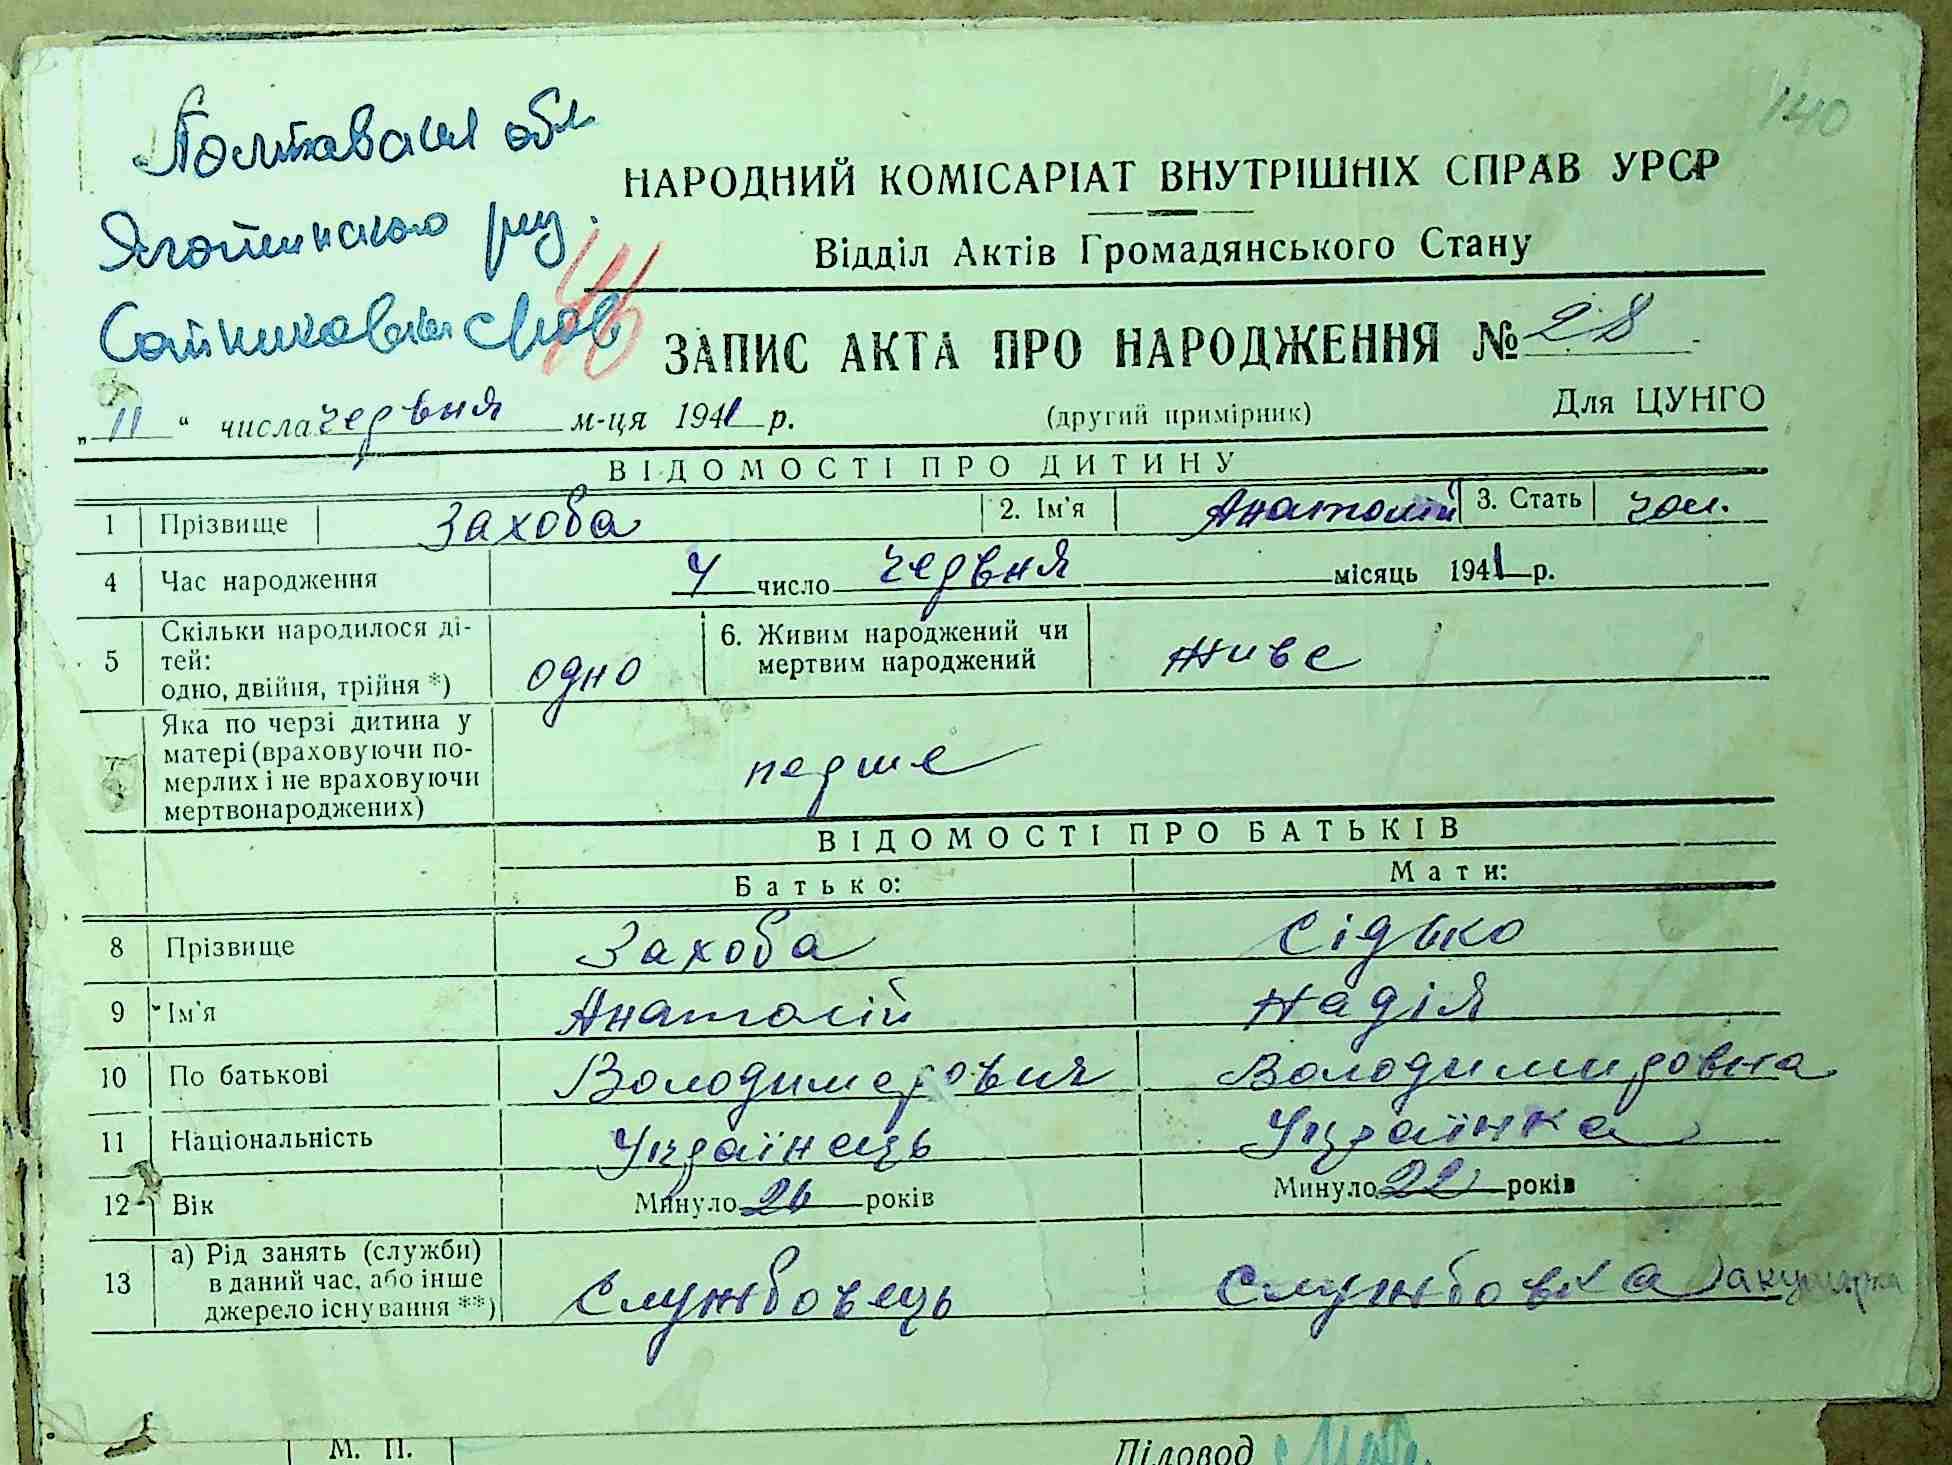 140
Полтавська обл.
НАРОДНИЙ КОМІСАРІАТ ВНУТРІШНІХ СПРАВ УРСР
Яготинського рну.
Відділ Актів Громадянського Стану
46
ЗАПИС АКТА ПРО НАРОДЖЕННЯ № 28
„ 11 “ числа червня м-ця 1941 р. (другий примірник) Для ЦУНГО
ВІДОМОСТІ ПРО ДИТИНУ
1 Прізвище Захоба 2. Ім'я Анатолій 3. Стать чол.
4 Час народження 4 число червня місяць 1941 р.
5 Скільки народилося ді-
тей:
одно, двійня, трійня *) одно 6. Живим народжений чи
мертвим народжений живе
7 Яка по черзі дитина у
матері (враховуючи по-
мерлих і не враховуючи
мертвонароджених) перше
ВІДОМОСТІ ПРО БАТЬКІВ
Батько: Мати:
8 Прізвище Захоба Сідько
9 Ім'я Анатолій Надія
10 По батькові Володимерович Володимировна
11 Національність Українець Українка
12 Вік Минуло 26 років Минуло 22 років
13 а) Рід занять (служби)
в даний час, або інше
джерело існування **) Службовець Службовка акушерка
М. П. Діловод